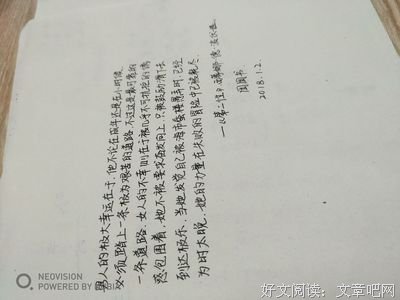 男人的极大幸运在于,他不论在成年还是在小时候,
必须踏上一条极为艰苦的道路,不过这是最可靠的
一条道路,女人的不幸则在于被几乎不可抗拒的诱
惑包围着,她不被要求奋发向上,只被鼓励滑下去
到达极乐。当她发觉自己被海市蜃楼愚弄时,已经
为时太晚,她的力量在失败的冒险中已被耗尽。
——《第二性》西蒙娜·德·波伏娃
周图书
2018.1.2.
NEOVISION
POWERED BY
好文阅读:文章吧网